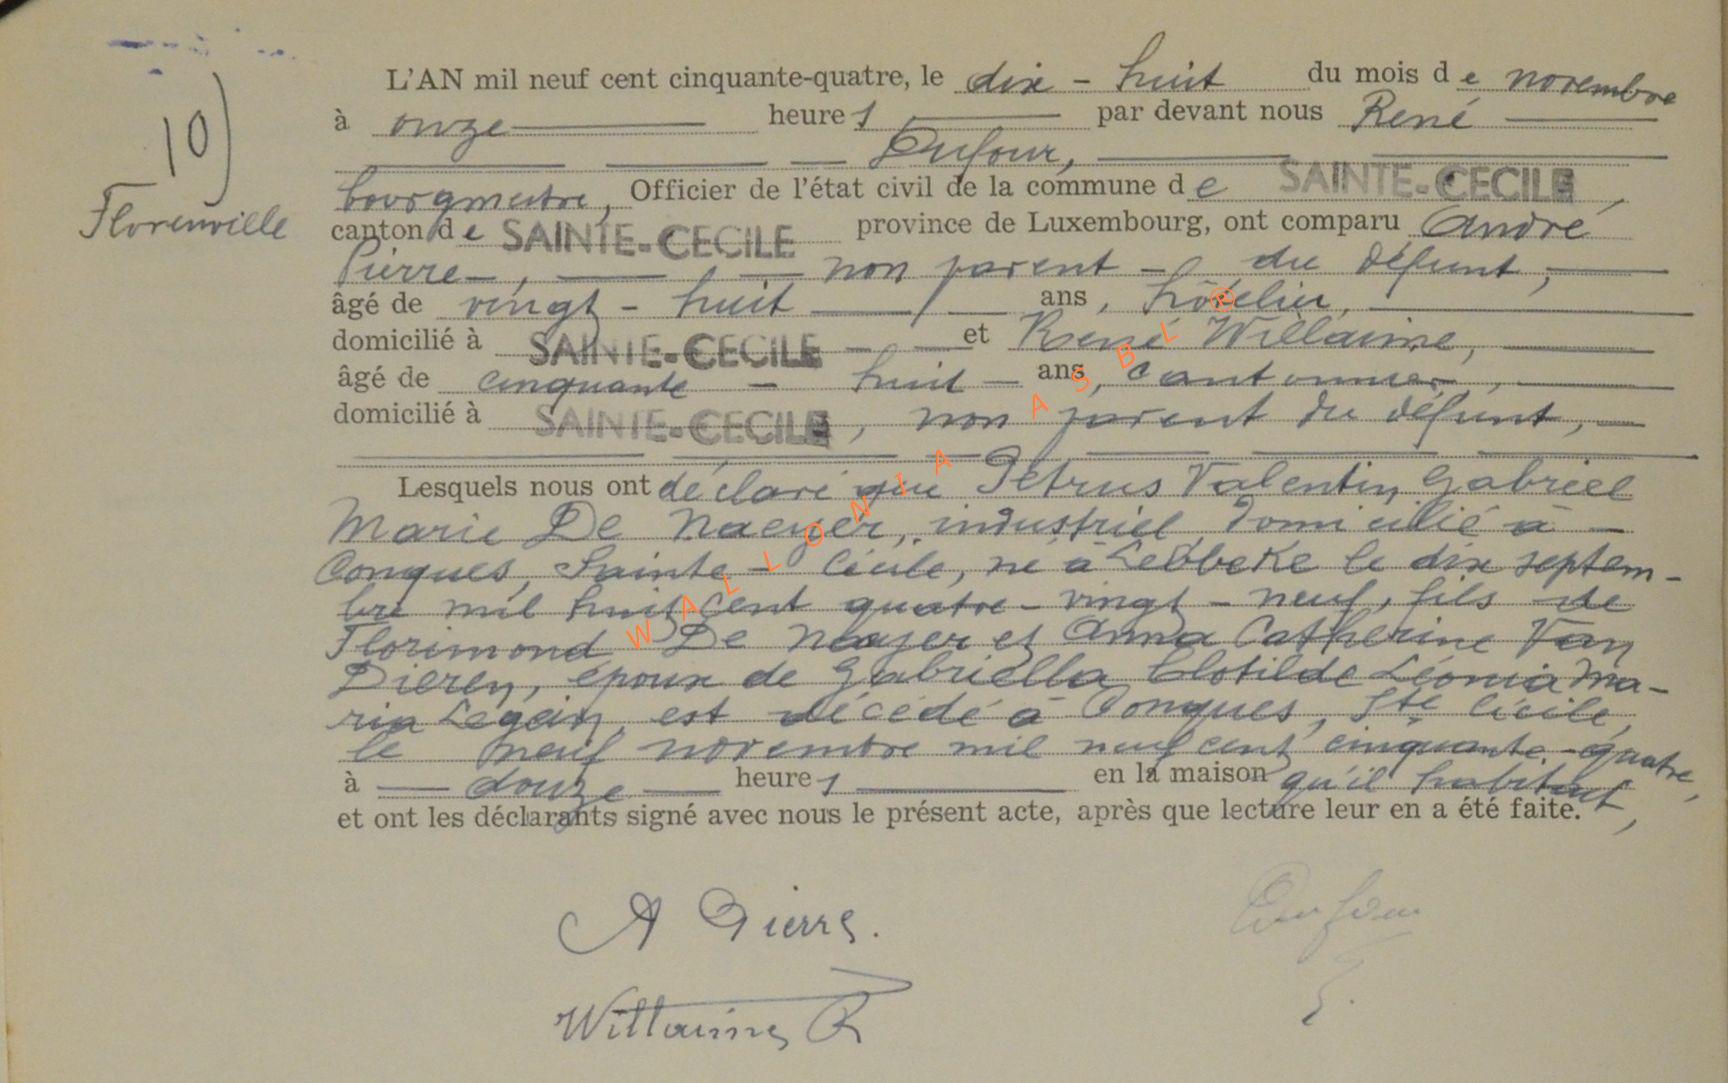 10)
Florenville
L'AN mil neuf cent cinquante-quatre, le dix - huit du mois de novembre
à onze heures par devant nous René
Dufour,
bourgmestre, Officier de l'état civil de la commune de SAINTE-CECILE,
canton de SAINTE-CECILE province de Luxembourg, ont comparu André
Pierre, non parent du défunt,
âgé de vingt - huit ans, hôtelier,
domicilié à SAINTE-CECILE et René Willaime,
âgé de cinquante - huit ans, cantonnier,
domicilié à SAINTE-CECILE, non parent du défunt,
Lesquels nous ont déclaré que Petrus Valentin Gabriel
Marie De Naeyer, industriel domicilié à
Conques, Sainte - Cécile, né à Lebbeke le dix septem-
bre mil huit cent quatre - vingt - neuf, fils de
Florimond De Naeyer et Anna Catherine Van
Dieren, époux de Gabriella Clotilde Léonia Ma-
ria Legein, est décédé à Conques, Ste Cécile,
le neuf novembre mil neuf cent cinquante-quatre,
à douze heures en la maison qu'il habitait,
et ont les déclarants signé avec nous le présent acte, après que lecture leur en a été faite.
A Pierre.
Dufour
Willaime R
WALLONIA ASBL ®